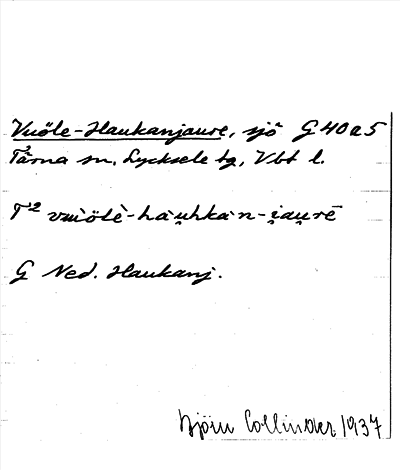 Vuöle-Haukanjaure, sjö G40a5
Tärna sn, Lycksele tg, Vbt l.
T² vuìölè-hàu̯hkàn-i̯au̯rē
G Ned. Haukanj.
Björn Collinder 1937